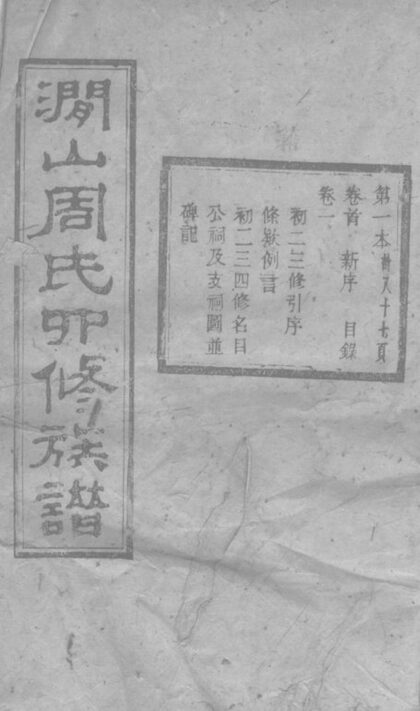 第一本共八十七頁
卷首 新序 目錄
卷一
初二三修引序
條欵例言
初二三四修名目
公祠及支祠圖並
碑記
澗山周氏四修族譜